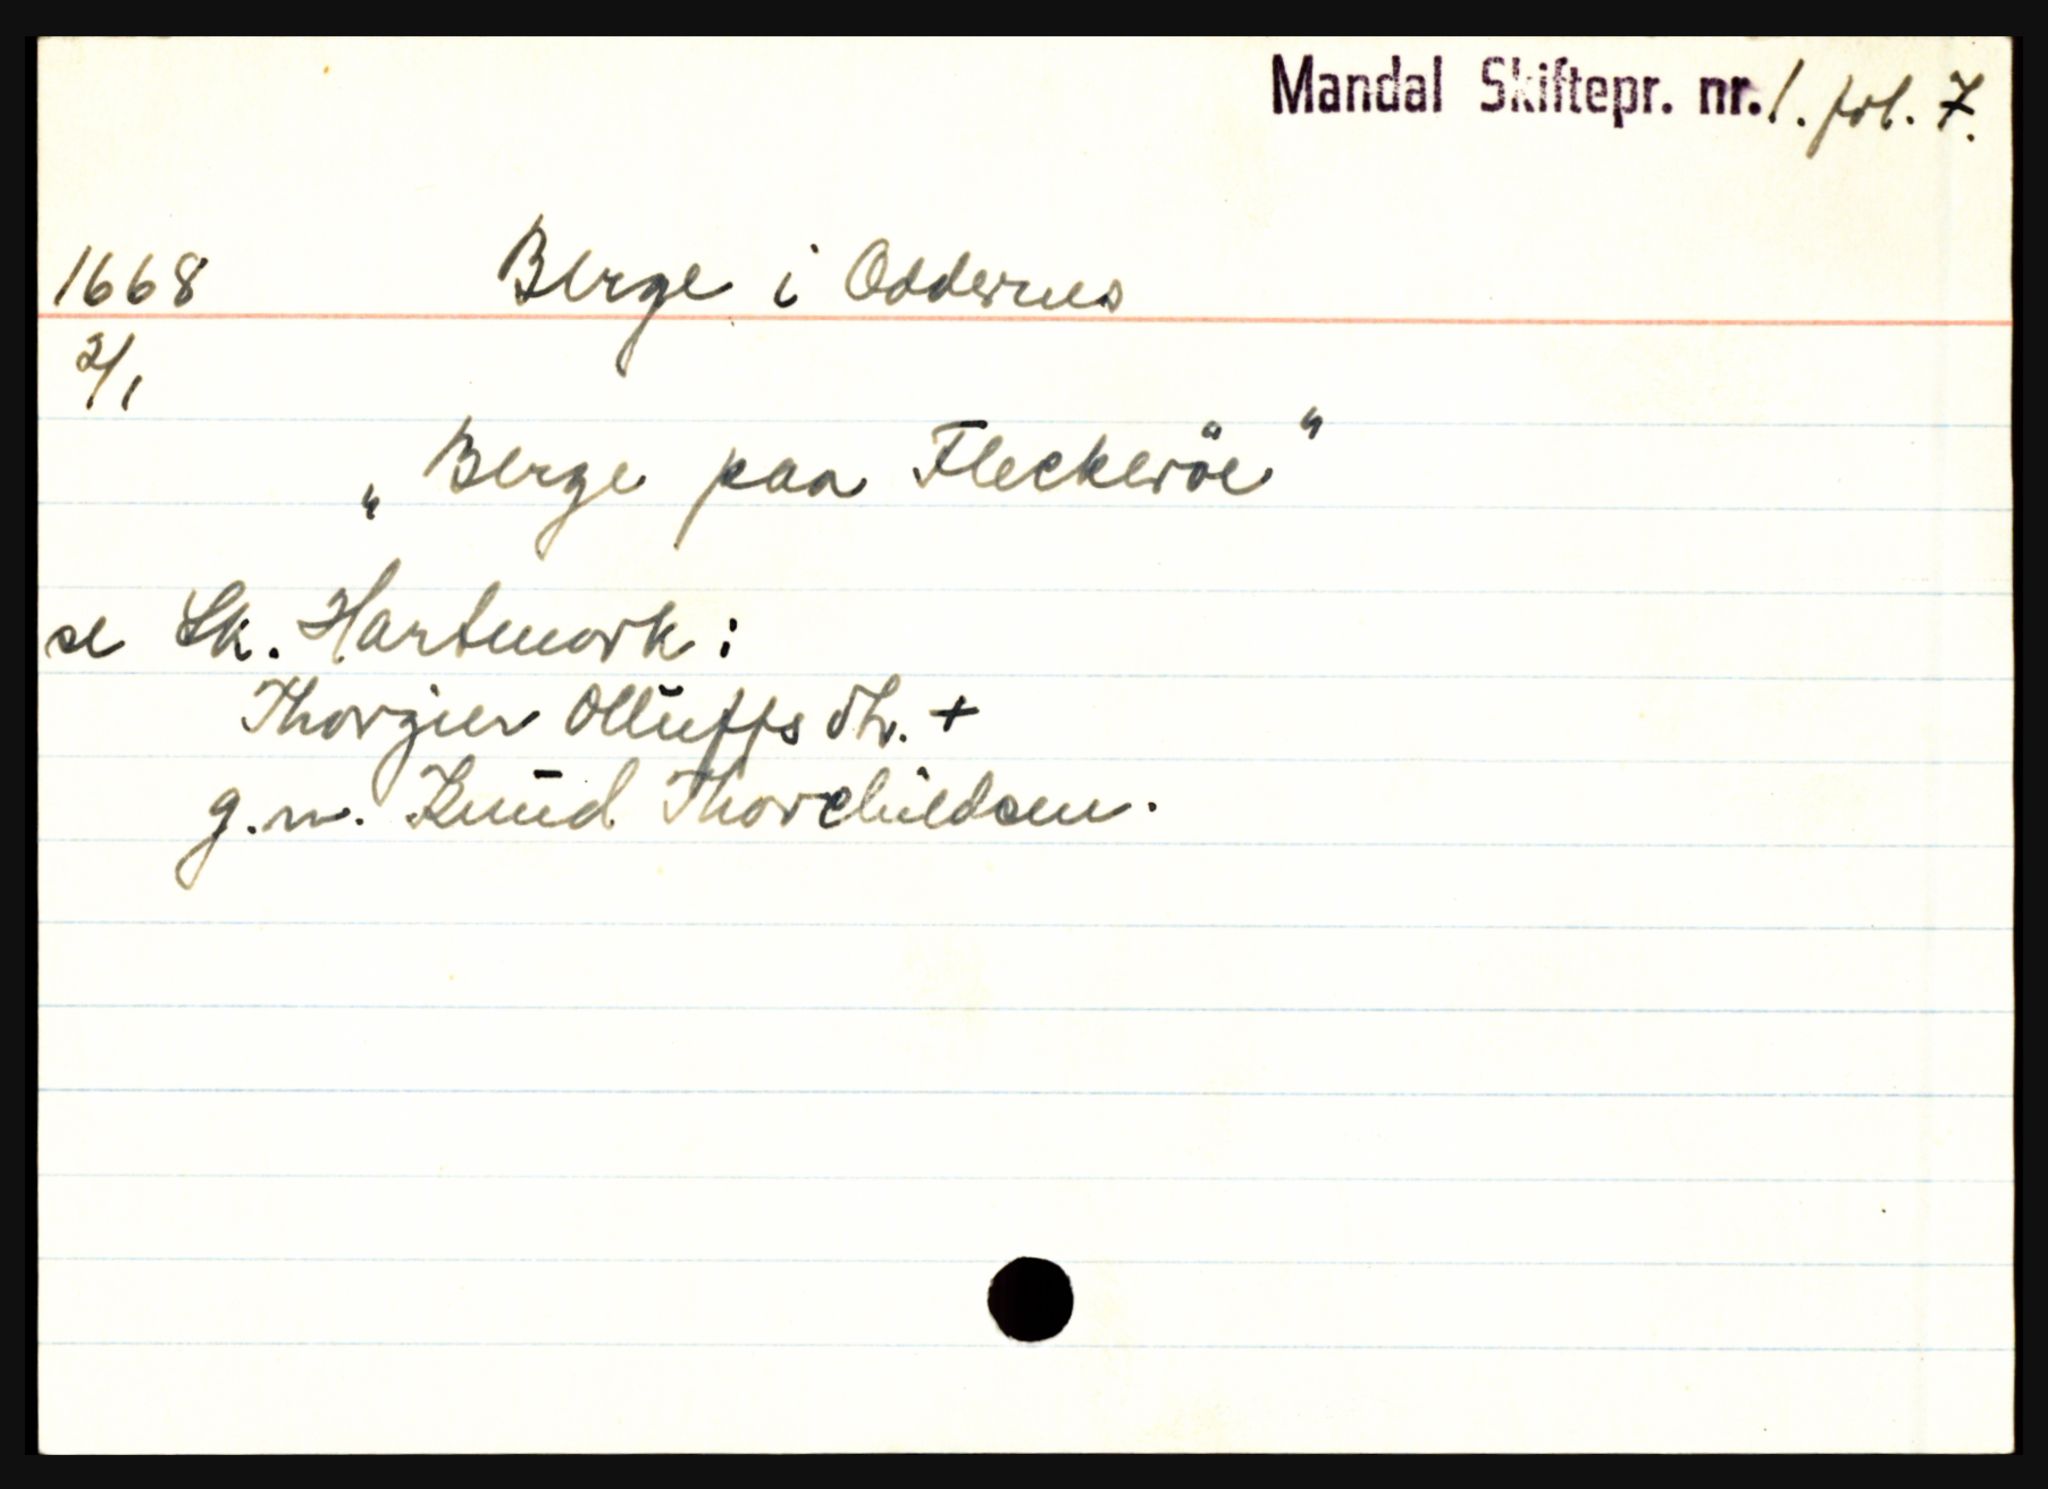 Mandal Skiftepr. nr. 1. fol. 7.
1668 Berge i Oddernes
2/1
„Berge paa Fleckeröe"
se Sk. Hartmark:
Thorgier Olluffs dtr. +
g.m. Knud Thorchildsen.